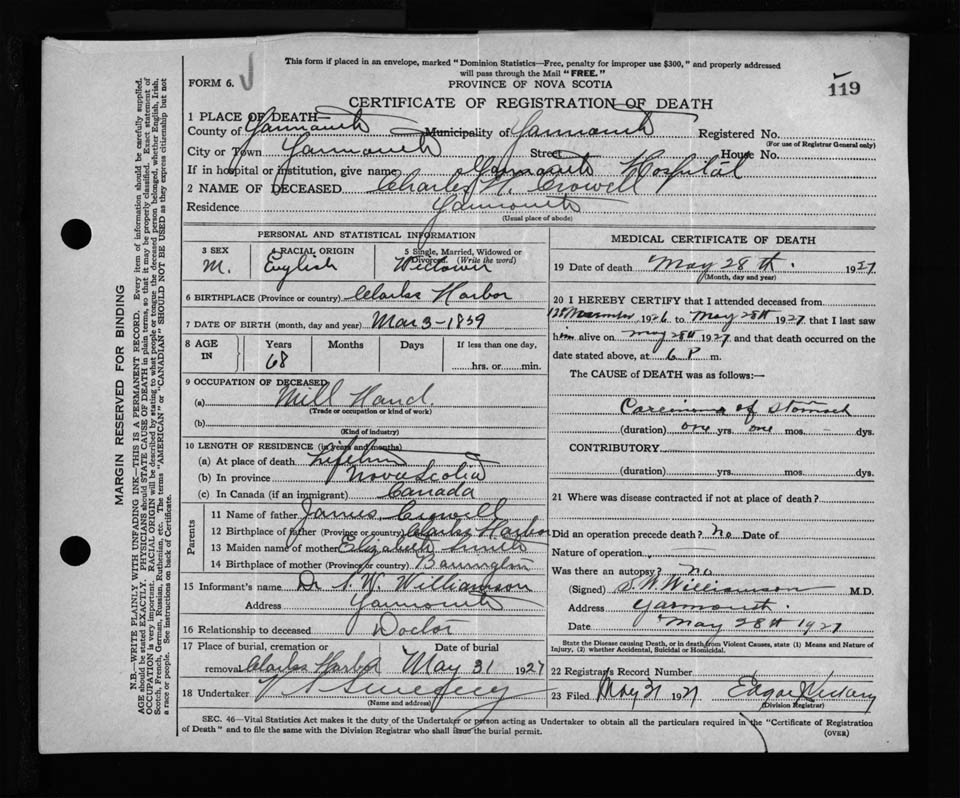 This form if placed in an envelope, marked "Dominion Statistics—Free, penalty for improper use $300," and properly addressed
will pass through the Mail "FREE."
FORM 6.
PROVINCE OF NOVA SCOTIA
119
CERTIFICATE OF REGISTRATION OF DEATH
1 PLACE OF DEATH—
County of Yarmouth Municipality of Yarmouth Registered No.
(For use of Registrar General only)
City or Town Yarmouth Street House No.
If in hospital or institution, give name Yarmouth Hospital
2 NAME OF DECEASED Charles N. Crowell
Residence Yarmouth
(Usual place of abode)
PERSONAL AND STATISTICAL INFORMATION
3 SEX 4 RACIAL ORIGIN 5 Single, Married, Widowed or
Divorced. (Write the word)
M. English Widower
6 BIRTHPLACE (Province or country) Clarks Harbor
7 DATE OF BIRTH (month, day and year) Mar 3-1859
8 AGE IN Years Months Days If less than one day,
68 hrs. or min.
9 OCCUPATION OF DECEASED
(a) Mill Hand.
(Trade or occupation or kind of work)
(b)
(Kind of industry)
10 LENGTH OF RESIDENCE (in years and months)
(a) At place of death Lifetime
(b) In province Nova Scotia
(c) In Canada (if an immigrant) Canada
Parents
11 Name of father James Crowell
12 Birthplace of father (Province or country) Clarks Harbor
13 Maiden name of mother Elizabeth Smith
14 Birthplace of mother (Province or country) Barrington
15 Informant's name Dr S. W. Williamson
Address Yarmouth
16 Relationship to deceased Doctor
17 Place of burial, cremation or Date of burial
removal Clarks Harbor May 31 1927
18 Undertaker V S Sweeney
(Name and address)
MEDICAL CERTIFICATE OF DEATH
19 Date of death May 28th. 1927
(Month, day and year)
20 I HEREBY CERTIFY that I attended deceased from
1926 to May 28th 1927 that I last saw
him alive on May 28th 1927 and that death occurred on the
date stated above, at 6 P m.
The CAUSE of DEATH was as follows:—
Carcinoma of Stomach
(duration) one yrs. one mos. — dys.
CONTRIBUTORY.
(duration) yrs. mos. dys.
21 Where was disease contracted if not at place of death?
Did an operation precede death? no Date of
Nature of operation —
Was there an autopsy? no
(Signed) S. W Williamson M.D.
Address Yarmouth.
Date May 28th 1927
State the Disease causing Death, or in death from Violent Causes, state (1) Means and Nature of
Injury, (2) whether Accidental, Suicidal or Homicidal.
22 Registrar's Record Number
23 Filed May 31 1927 Edgar
(Division Registrar)
SEC. 46—Vital Statistics Act makes it the duty of the Undertaker or person acting as Undertaker to obtain all the particulars required in the "Certificate of Registration
of Death" and to file the same with the Division Registrar who shall issue the burial permit.
(OVER)
MARGIN RESERVED FOR BINDING
N.B.—WRITE PLAINLY WITH UNFADING INK—THIS IS A PERMANENT RECORD. Every item of information should be carefully supplied.
AGE should be stated EXACTLY. PHYSICIANS should STATE CAUSE OF DEATH in plain terms, so that it may be properly classified. Exact statement of
OCCUPATION is very important. RACIAL ORIGIN will be described by stating to what people or tongue the deceased person belonged, whether English, Irish,
Scotch, French, German, Russian, Ruthenian, etc. The terms "AMERICAN" or "CANADIAN" SHOULD NOT BE USED as they express citizenship but not
a race or people. See instructions on back of Certificate.